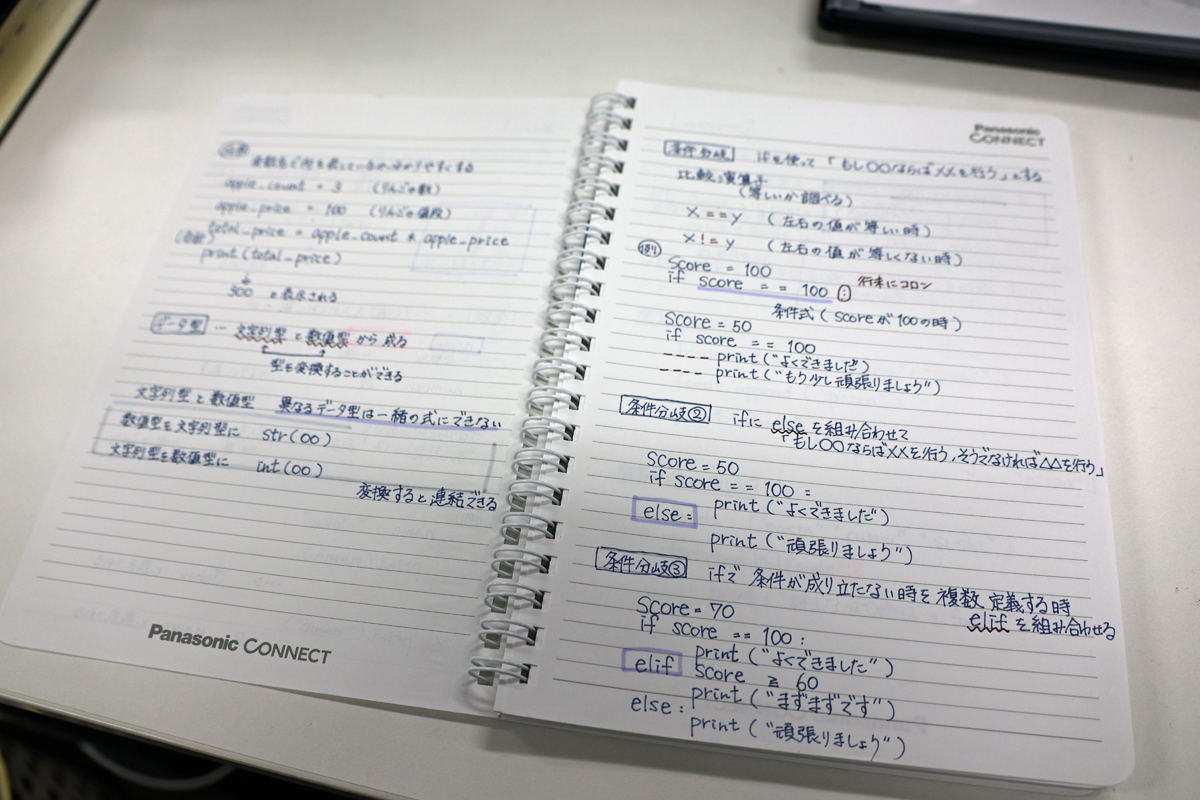 変数名で何を表しているか分かりやすくする
apple_count = 3 (りんごの数)
apple_price = 100 (りんごの値段)
total_price = apple_count * apple_price
print(total_price)
↓
300 と表示される
データ型 … 文字列型 と 数値型 から成る
型を変換することができる
文字列型 と 数値型 異なるデータ型は一緒の式にできない
数値型を文字列型に str(○○)
文字列型を数値型に int(○○)
変換すると連結できる
Panasonic CONNECT
Panasonic
CONNECT
条件分岐 ifを使って「もし○○ならば××を行う」とする
比較演算子
(等しいか調べる)
x == y (左右の値が等しい時)
x != y (左右の値が等しくない時)
例)
Score = 100
if score == 100 : 行末にコロン
条件式 (scoreが100の時)
Score = 50
if score == 100
---- print ("よくできました")
---- print ("もう少し頑張りましょう")
条件分岐② ifに else を組み合わせて
「もし○○ならば××を行う、そうでなければ△△を行う」
Score = 50
if score == 100 :
print ("よくできました")
else :
print ("頑張りましょう")
条件分岐③ ifで 条件が成り立たない時を 複数 定義する時
elif を組み合わせる
Score = 70
if score == 100 :
print ("よくできました")
elif score ≧ 60
print ("まずまずです")
else :
print ("頑張りましょう")